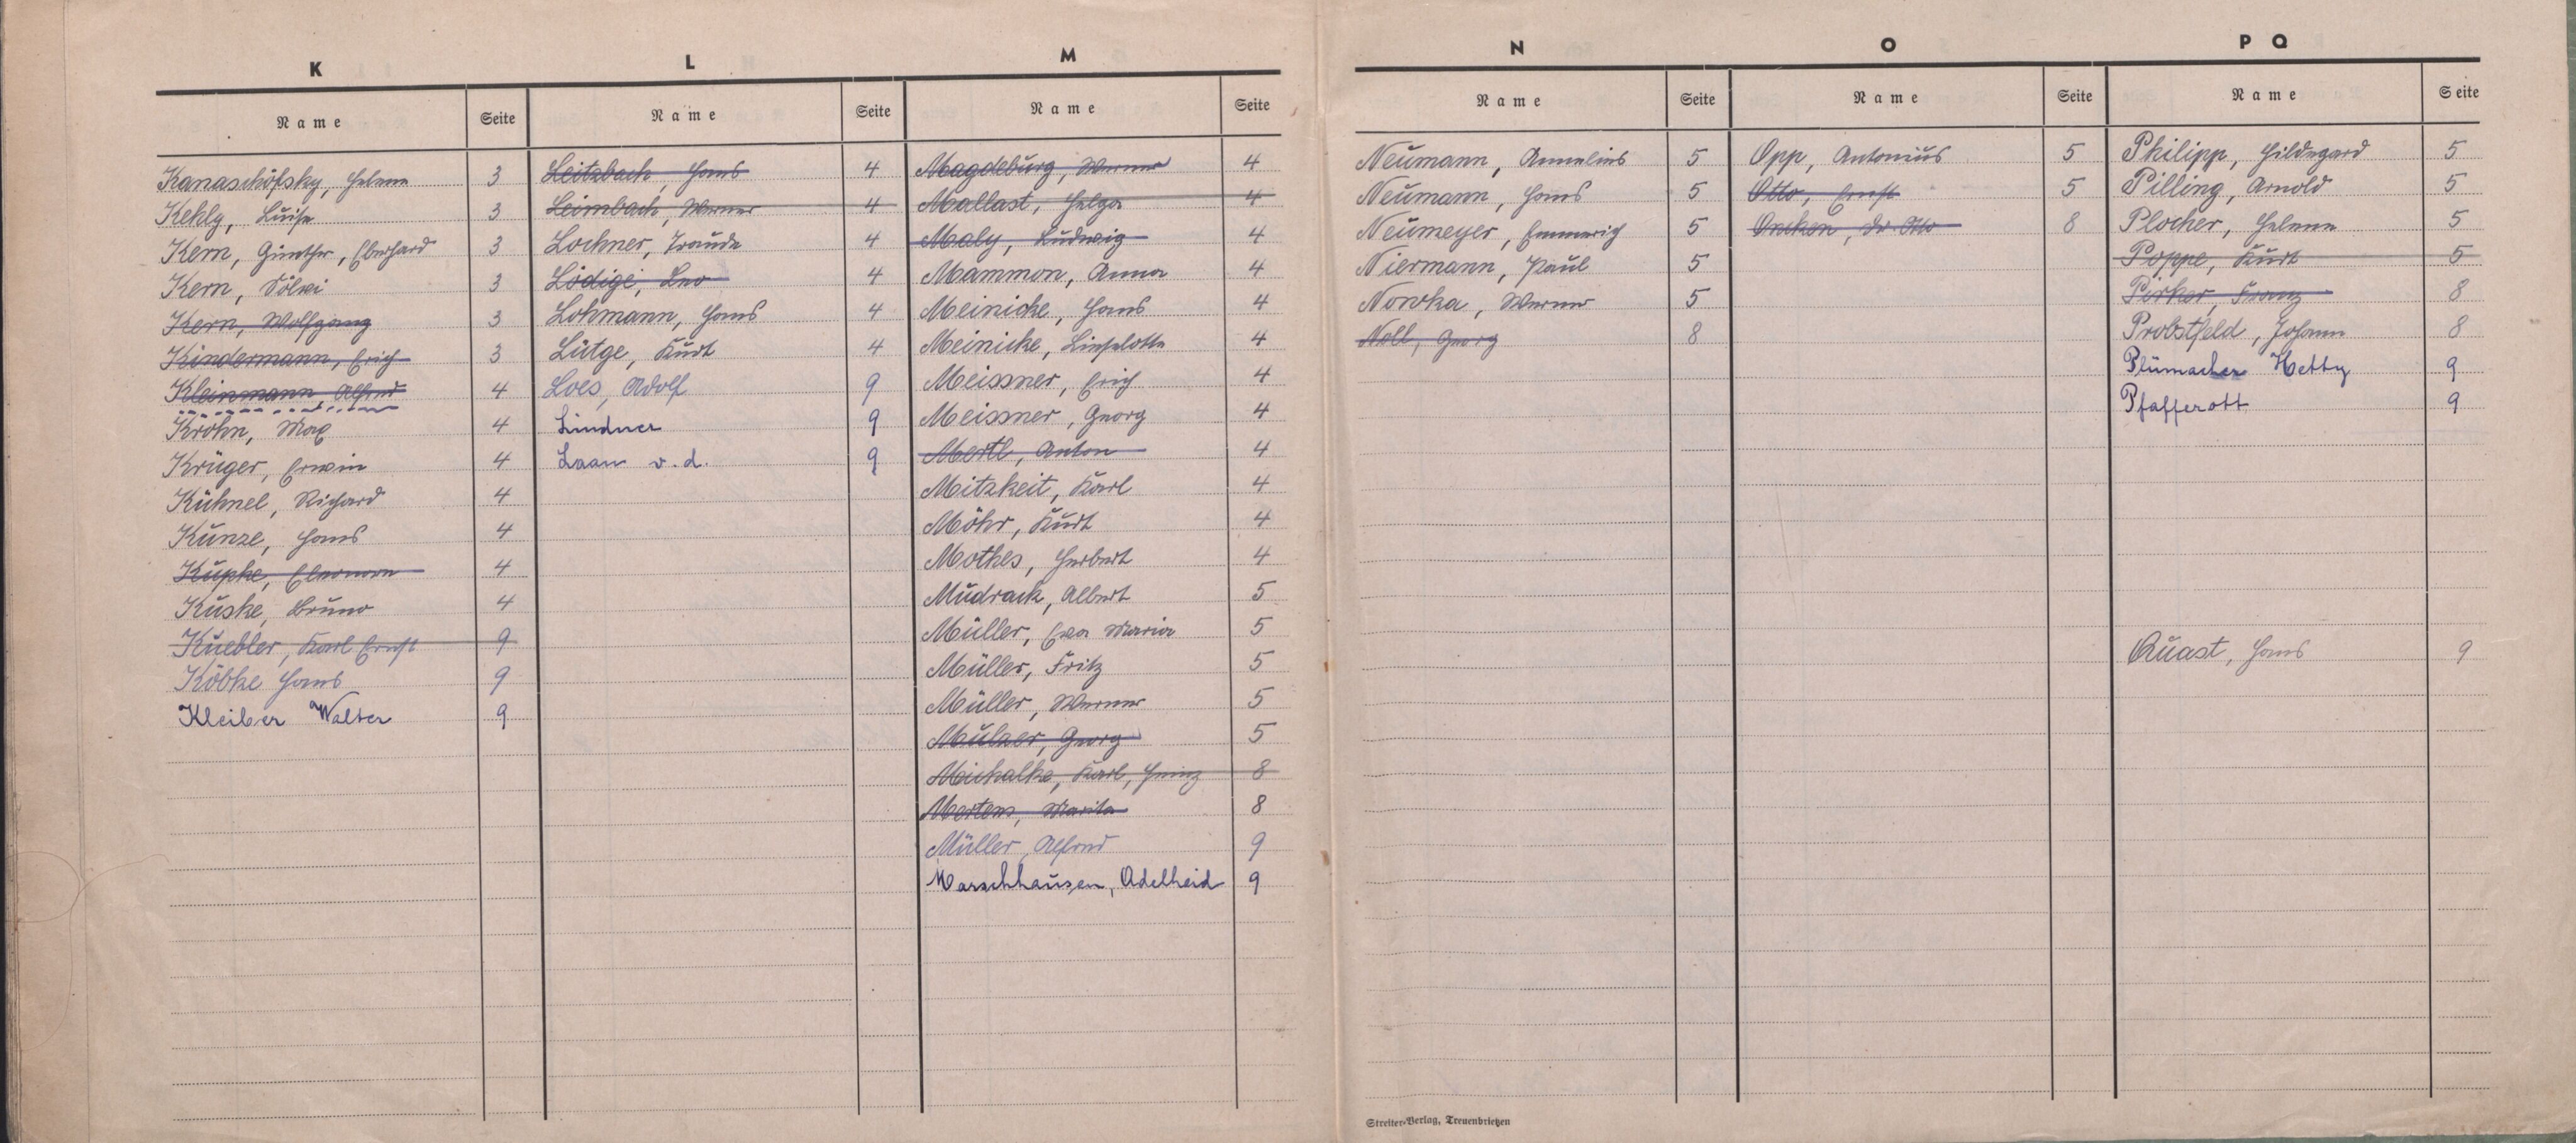 K
Name Seite
Kanaschöfsky, Helene 3
Kekly, Luise 3
Kern, Günther, Eberhard 3
Kern, Sölvi 3
Kern, Wolfgang 3
Kindermann, Erich 3
Kleinmann, Alfred 4
Krohn, Max 4
Krüger, Erwin 4
Kühnel, Richard 4
Kunze, Hans 4
Kupke, Eleonore 4
Kuske, Bruno 4
Kuebler, Karl Ernst 9
Köbke Hans 9
Kleiber Walter 9
L
Name Seite
Leitzbach, Hans 4
Leimbach, Werner 4
Lochner, Traude 4
Lödige, Leo 4
Lohmann, Hans 4
Lütge, Kurt 4
Loes, Adolf 9
Lindner 9
Laan v. d. 9
M
Name Seite
Magdeburg, Werner 4
Mallast, Helga 4
Maly, Ludwig 4
Mammon, Anna 4
Meinicke, Hans 4
Meinicke, Lieselotte 4
Meissner, Erich 4
Meissner, Georg 4
Mertl, Anton 4
Mitzkeit, Karl 4
Möhr, Kurt 4
Mothes, Herbert 4
Mudrack, Albert 5
Müller, Eva Maria 5
Müller, Fritz 5
Müller, Werner 5
Mulzer, Georg 5
Michalke, Karl, Heinz 8
Mertens, Marita 8
Müller, Alfred 9
Marschhausen, Adelheid 9
N
Name Seite
Neumann, Annelies 5
Neumann, Hans 5
Neumeyer, Emmerich 5
Niermann, Paul 5
Nowka, Werner 5
Noll, Georg 8
Streiter-Verlag, Treuenbrietzen
O
Name Seite
Opp, Antonius 5
Otto, Ernst 5
Oncken, Dr. Otto 8
P Q
Name Seite
Philipp, Hildegard 5
Pilling, Arnold 5
Plocher, Helene 5
Poppe, Kurt 5
Perker, Franz 8
Probstfeld, Johann 8
Plümacher Hetty 9
Pfafferott 9
Quast, Hans 9